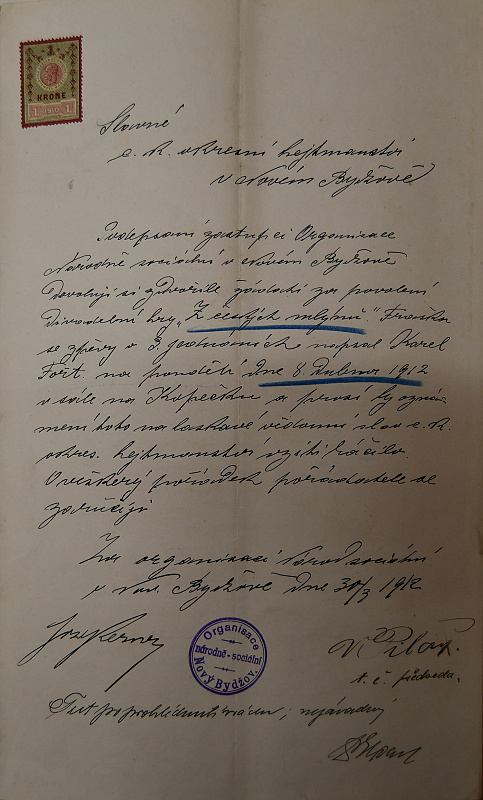 1
KRONE
1 1910 1
Slavné
c. k. okresní hejtmanství
v Novém Bydžově
Podepsaní zástupci Organisace
Národně sociální v Novém Bydžově
dovolují si zdvořile žádati za povolení
divadelní hry „Z českých mlýnů" Fraška
se zpěvy v 3 jednáních napsal Karel
Fořt. na pondělí dne 8. dubna 1912
v sále na Kopečku a prosí by ozná-
mení toto na laskavé vědomí slav. c. k.
okres. hejtmanství vzíti ráčilo.
O veškerý pořádek pořadatelé se
zaručují
Za organisaci Národ. sociální
v Nov. Bydžově dne 30/3 1912
Organisace
národně-sociální
Nový Bydžov.
V. Pilař.
t. č. předseda.
Text po prohlédnutí; nezávadný